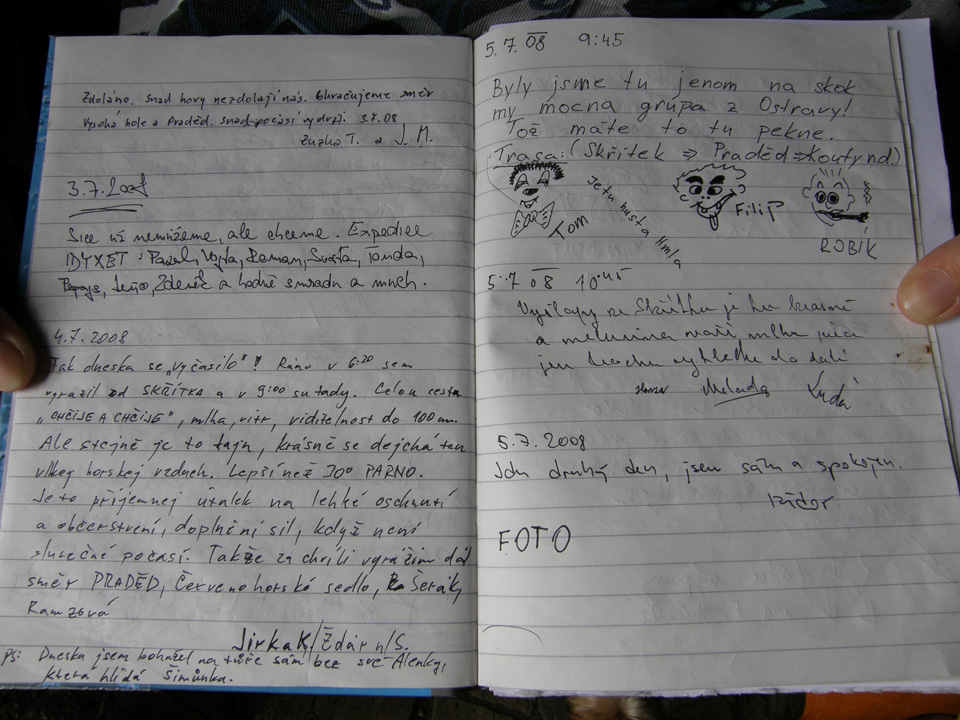 Zdoláno. Snad hory nezdolají nás. Obracujeme směr
Vysoká hole a Praděd. Snad počasí vydrží 3.7.08
Zuzka T. a J. M.
3.7.2008
Sice už nemůžeme, ale chceme. Expedice
IDYXET: Pavel, Vojta, Roman, Sváťa, Tonda,
Zdeněk a hodně smradu a much.
4.7.2008
Tak dneska se „vyčasilo"! Ráno v 6:20 sem
vyrazil od SKŘÍTKA a v 9:00 su tady. Celou cestu
„CHČIJE A CHČIJE", mlha, vítr, viditelnost do 100 m.
Ale stejně je to fajn, krásně se dejchá ten
vlhkej horskej vzduch. Lepší než 30° PARNO.
Je to příjemnej útulek na lehké oschnutí
a občerstvení, doplnění sil, když není
slunečné počasí. Takže za chvíli vyrážím dál
směr PRADĚD, Červenohorské sedlo, Šerák,
Ramzová
Jirka K./Žďár n/S.
PS: Dneska jsem bohužel na túře sám bez své Alenky,
která hlídá Šimůnka.
5.7.08 9:45
Byly jsme tu jenom na skok
my mocna grupa z Ostravy!
Tož máte to tu pekne.
Trasa: (Skřítek => Praděd => Kouty n.d.)
Je tu husta mlha
Tom
FILIP
ROBÍK
5.7 08 10:45
Výšlapy ze Skřítku je tu krásně
a meluzína vaří mlhu
jen trochu výhledu do dáli
Honza Milada Luďa
5.7.2008
Jdu druhý den, jsem sám a spokojen.
Izidor
FOTO